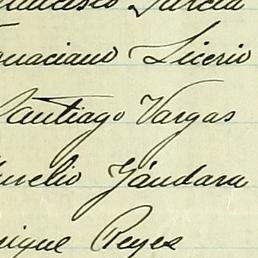 Francisco García
Ignaciano Licerio
Santiago Vargas
Aurelio Gándara
Enrique Reyes